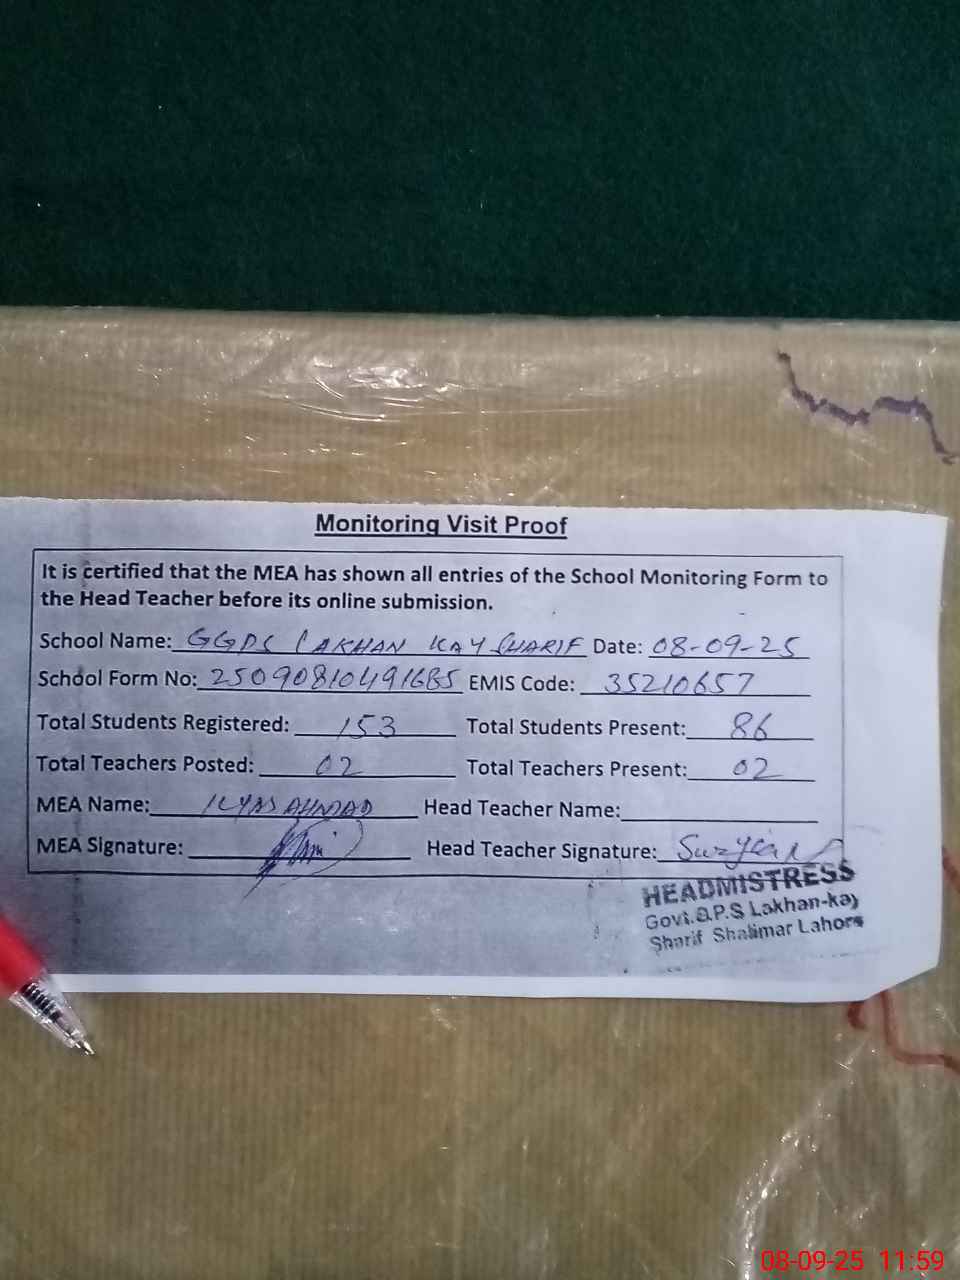 Monitoring Visit Proof
It is certified that the MEA has shown all entries of the School Monitoring Form to
the Head Teacher before its online submission.
School Name: GGPS LAKHAN KAY SHARIF Date: 08-09-25
School Form No: 25090810491685 EMIS Code: 35210657
Total Students Registered: 153 Total Students Present: 86
Total Teachers Posted: 02 Total Teachers Present: 02
MEA Name: ILYAS AHMAD Head Teacher Name:
MEA Signature: Head Teacher Signature:
HEADMISTRESS
Govt.G.P.S Lakhan-kay
Sharif Shalimar Lahore
08-09-25 11:59